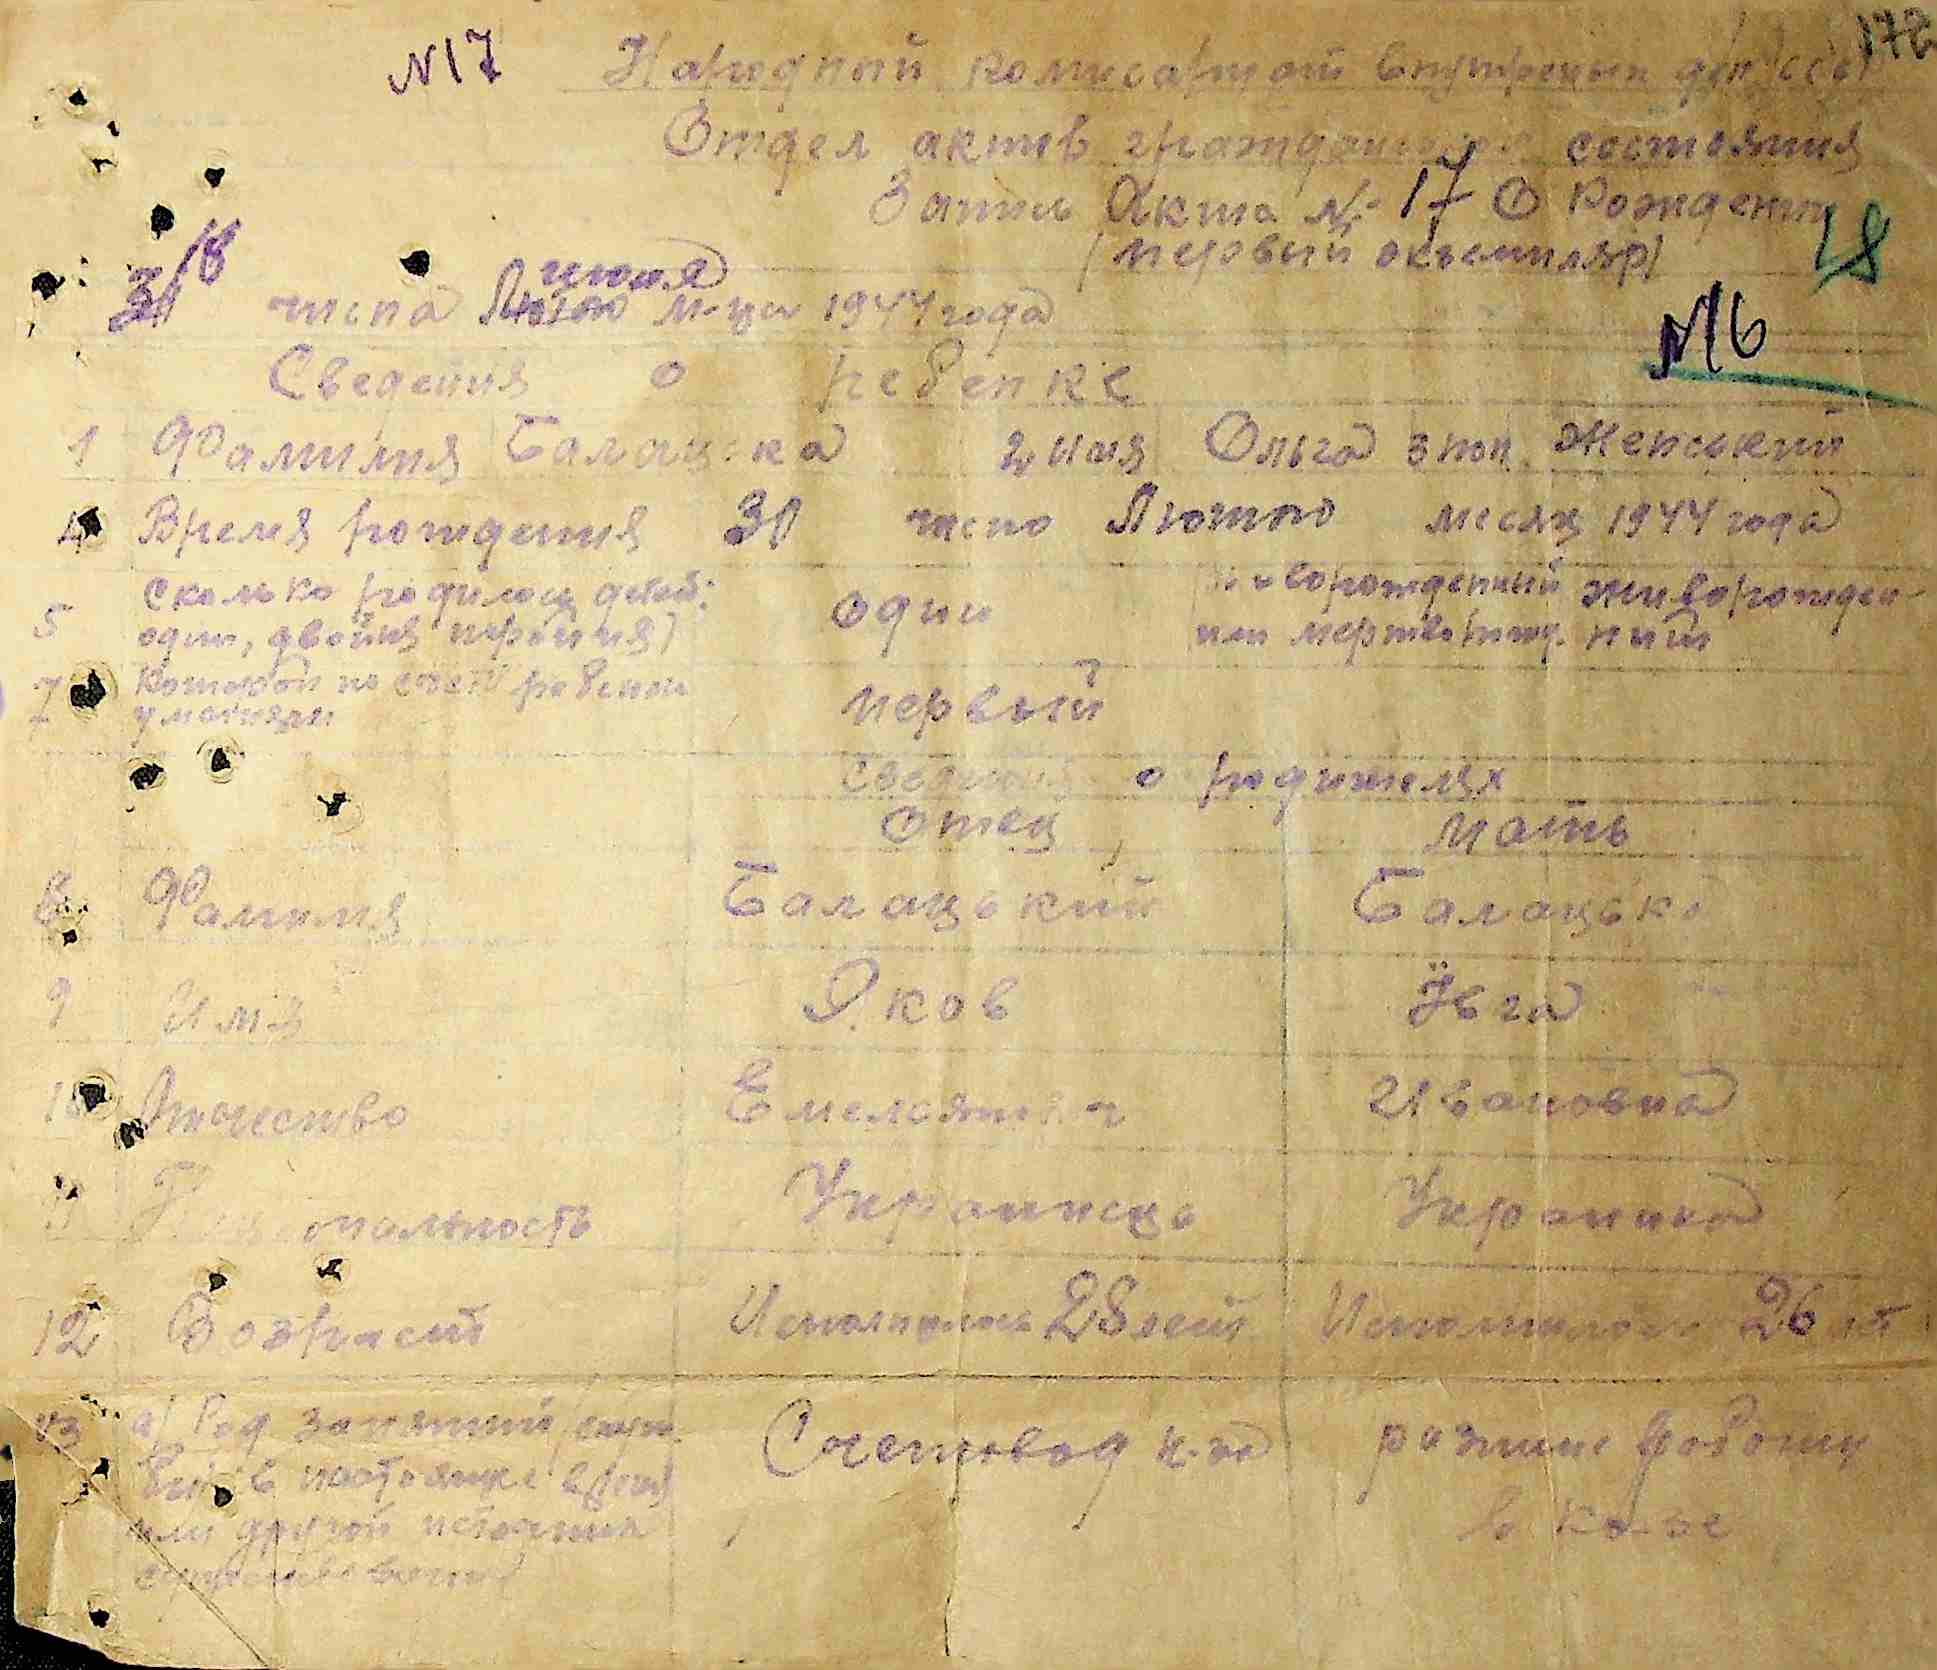 172
№17 Народный комисариат внутрених дел СССР
Отдел актив гражданских состояния
Запись Акта № 17 О Рождении
(первый екземпляр) 18
18
июля
числа Лютого м-ца 1944 года
№16
Сведения о ребенке
1 Фамилия Балацька 2 имя Ольга 3 пол Женський
4 Время рождения 30 число Лютого месяц 1944 года
5 Сколько родилось детей: один, двойня, тройня) один
новорожденный живорожден-
или мертворожд. ний
7 Который по счету ребенок
у матери первый
Сведения о родителях
Отец Мать
8 Фамилия Балацький Балацька
9 Имя Яков Ївга
10 Отчество Емелоянович Ивановна
11 Национальность Украинець Украинка
12 Возраст Исполнилось 28 лет Исполнилось 26 лет
13 а) Род занятий Счетовод к-за разние роботи
в настоящее время в кол-зе
или другой источник
существования